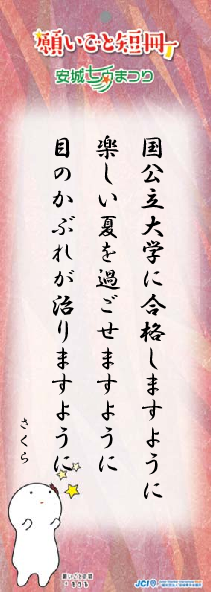 願いごと短冊
安城七夕まつり
国公立大学に合格しますように
楽しい夏を過ごせますように
目のかぶれが治りますように
さくら
JCI